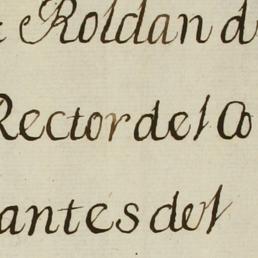 Roldan d
Rector del Co
antes del